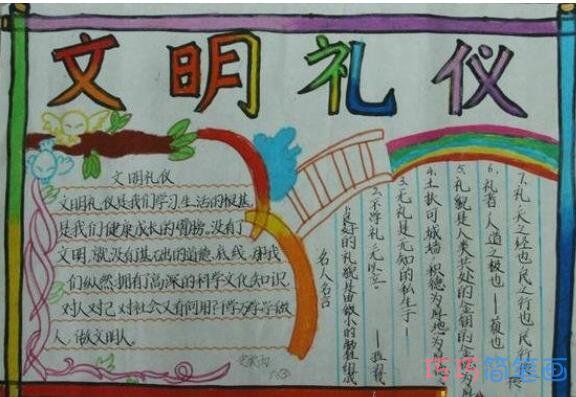 文明礼仪
文明礼仪
文明礼仪是我们学习、生活的根基,
是我们健康成长的臂膀。没有了
文明,就没有基石出的道德底线,那我
们纵然拥有了高深的科学文化知识
对人对己对社会又有何用?同学们学做
人,做文明人。
六③
名人名言
1.良好的礼貌是由微小的
2.不学礼,无以立。
3.无礼是无知的私生子——
4.土扶可城墙,积德为厚地
5.礼貌是人类共处的金钥
6.礼者,人道之极也——荀也
7.礼,天之经也,民之行也
简笔画